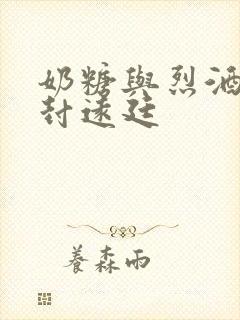 奶糖與烈酒
封遠廷
養森雨